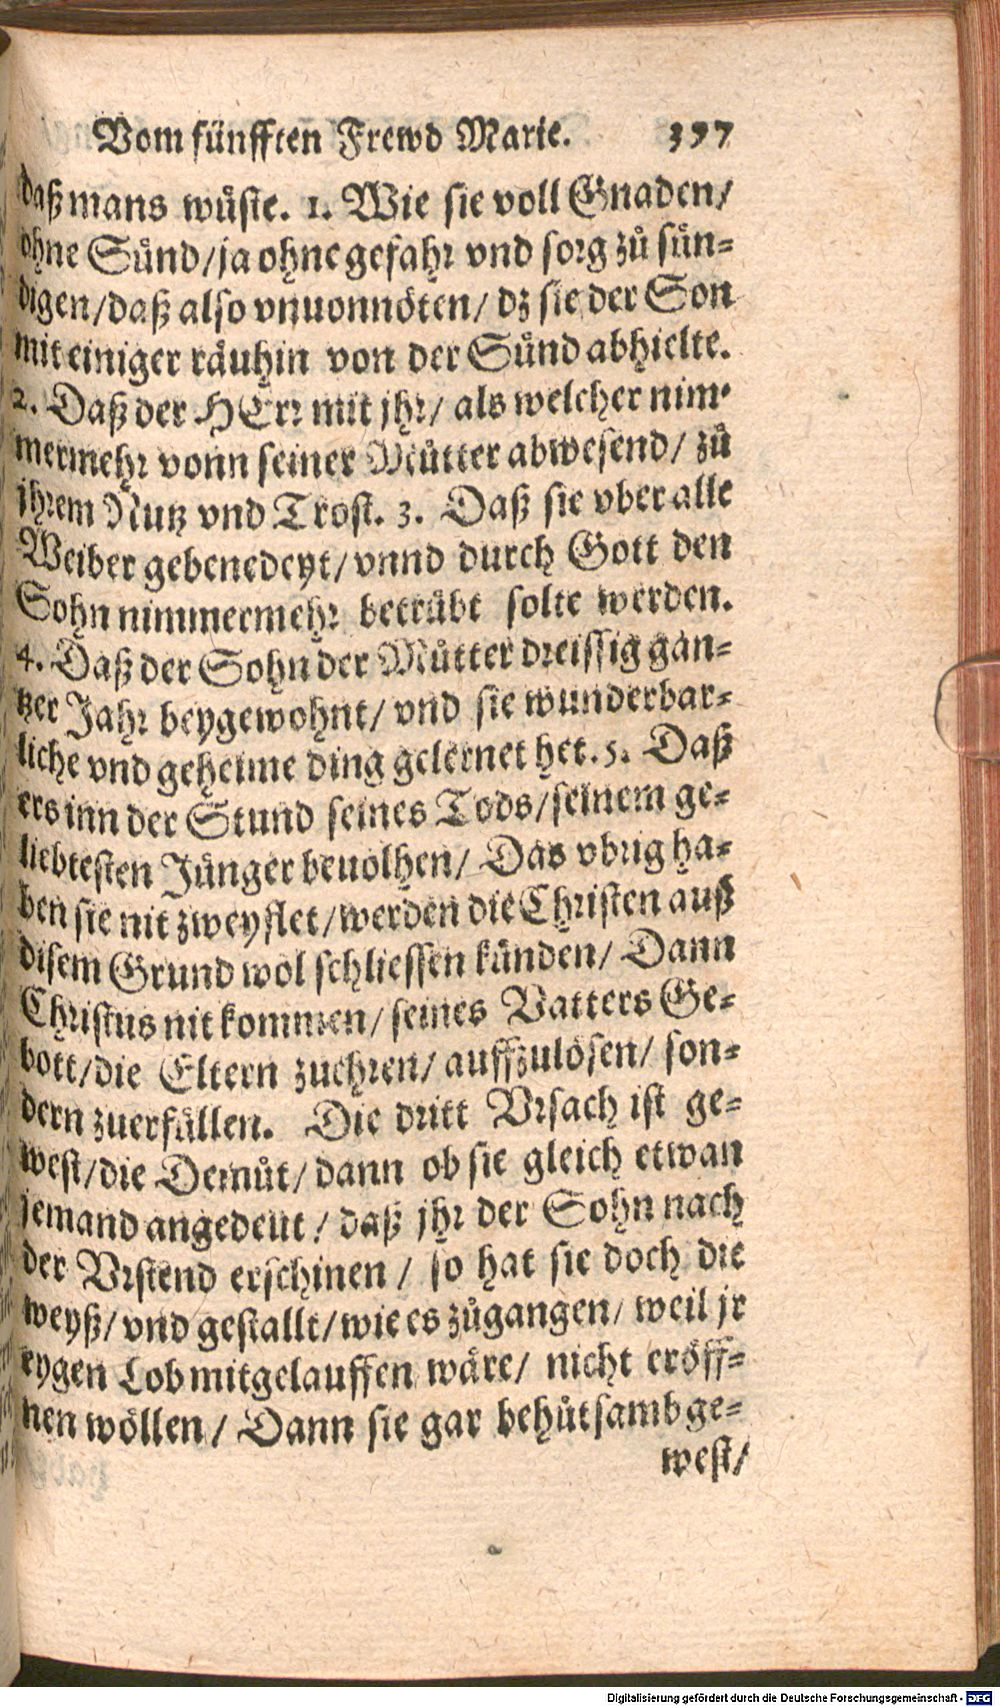 Vom fünfften Frewd Marie. 397
daß mans wüste. 1. Wie sie voll Gnaden/
ohne Sünd/ja ohne gefahr vnd sorg zů sün=
digen/daß also vnuonnöten/ dz sie der Son
mit einiger räuhin von der Sünd abhielte.
2. Daß der HErr mit jhr/ als welcher nim=
mermehr vonn seiner Můtter abwesend/ zů
jhrem Nutz vnd Trost. 3. Daß sie vber alle
Weiber gebenedeyt/ vnnd durch Gott den
Sohn nimmermehr betrübt solte werden.
4. Daß der Sohn der Můtter dreissig gan=
tzer Jahr beygewohnt/ vnd sie wunderbar=
liche vnd geheime ding gelernet het. 5. Daß
ers inn der Stund seines Tods/seinem ge=
liebtesten Jünger beuolhen/ Das vbrig ha=
ben sie nit zweyflet/werden die Christen auß
disem Grund wol schliessen künden/ Dann
Christus nit kommen/ seines Vatters Ge=
bott/die Eltern zuehren/ auffzulösen/ son=
dern zuerfüllen. Die dritt Vrsach ist ge=
west/die Demůt/ dann ob sie gleich etwan
jemand angedeut/ daß jhr der Sohn nach
der Vrstend erschinen/ so hat sie doch die
weyß/ vnd gestallt/wie es zůgangen/ weil jr
eygen Lob mitgelauffen wäre/ nicht eröff=
nen wöllen/ Dann sie gar behůtsamb ge=
west/
Digitalisierung gefördert durch die Deutsche Forschungsgemeinschaft - DFG